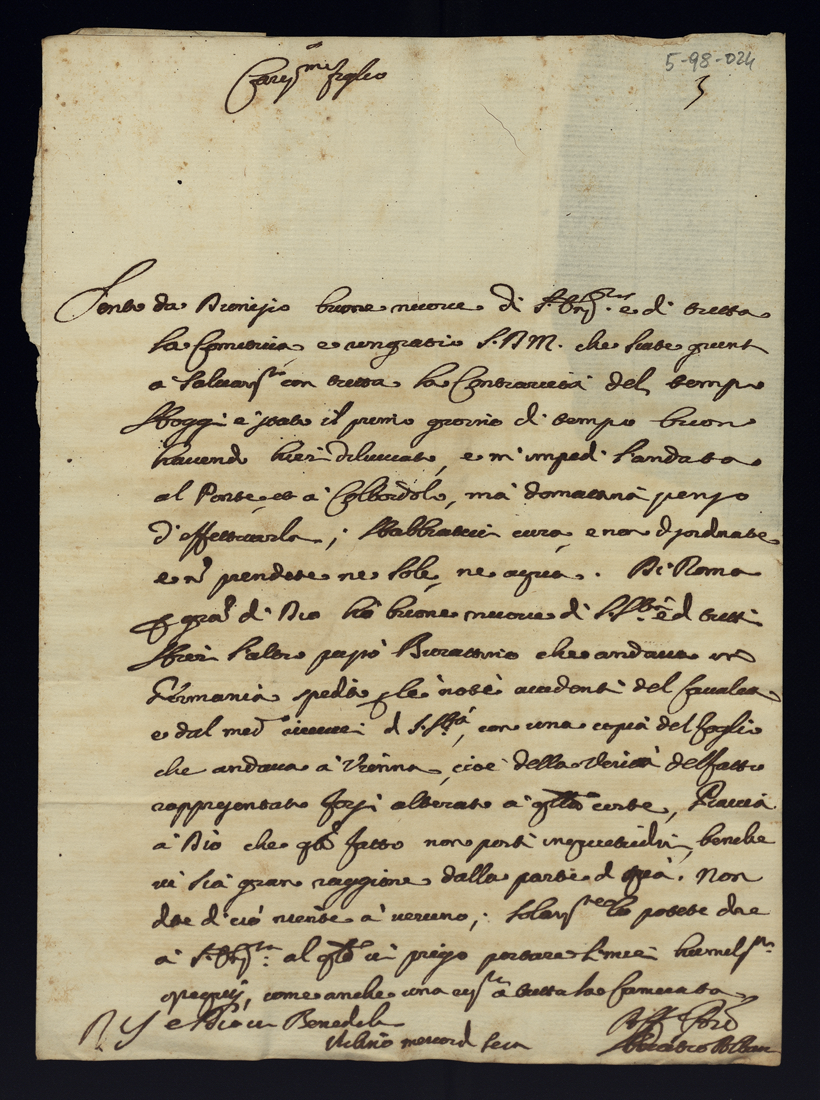 5-98-024
3
Cariss.mo figlio
Sento da Dionigio buone nuove di S. e di tutta
la Comitiva e ringratio S.D.M. che siate giunti
a con tutta la Contrarietà del tempo
Hoggi è stato il primo giorno di tempo buono
havendo hieri diluviato, e m'impedì l'andata
al Ponte, et à Colbordolo, mà domattina penso
d'effettuarla; Habbiatevi cura, e non disordinate
e nō prendete ne sole, ne acqua. Di Roma
gra. di Dio hò buone nuove di S. S.tà e di tutti
Hieri l'altro passò che andava in
Germania spedito le note accidenti del
e dal med.o di S. S.tà, con una copia del foglio
che andava à Vienna, cioè della verità del fatto
rappresentato forsi alterato à q.lla corte, Piaccia
à Dio che q.to fatto non porti inquietudini, benche
vi sia gran raggione dalla parte di quà. Non
dite di ciò niente à veruno; lo potete dire
à S. al q.le vi prego portare l. miei humiliss.mi
ossequij, come anche una à tutta la Camerata
e Dio vi Benedica
Urbino mercordì sera
Aff. P.re
Horatio Albani